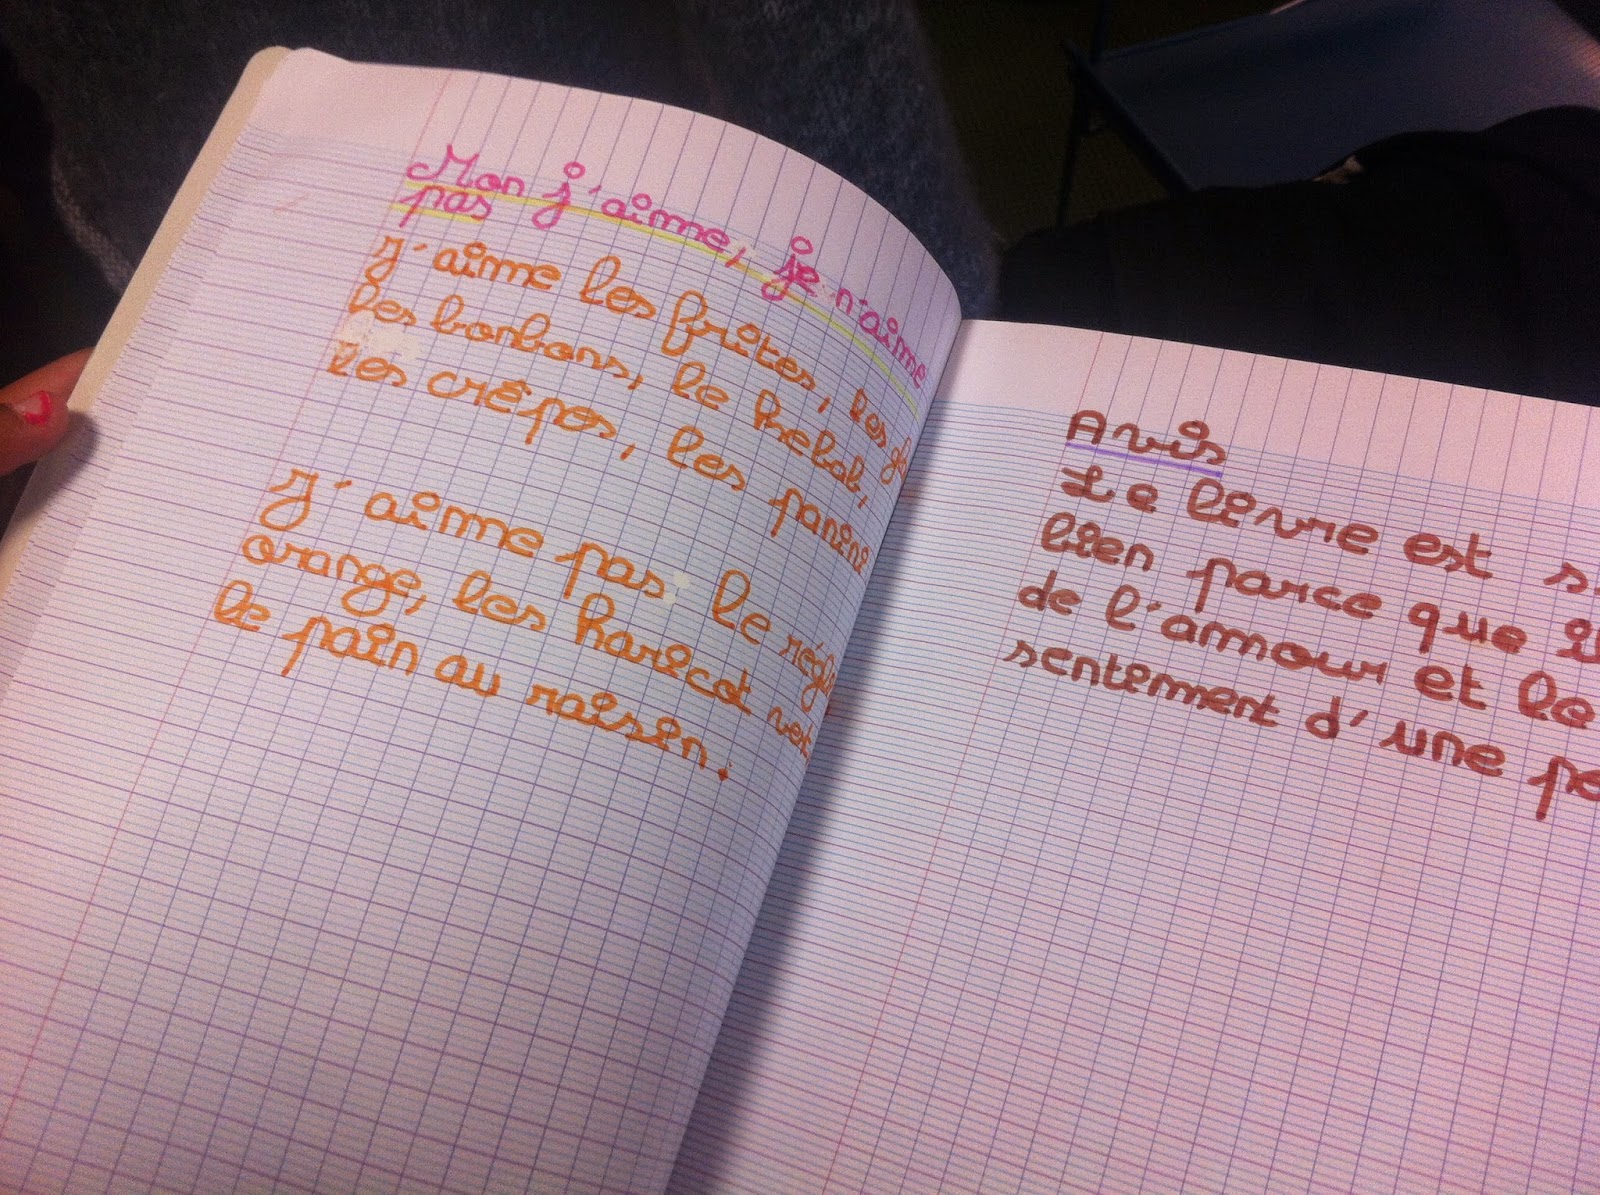 Mon j'aime, je n'aime
pas
J'aime les frites, les
les bonbons, le kebab,
les crêpes, les panini
J'aime pas: le
orange, les haricot
le pain au raisin.
Avis
Le livre est
bien parce que
de l'amour et le
sentiment d'une